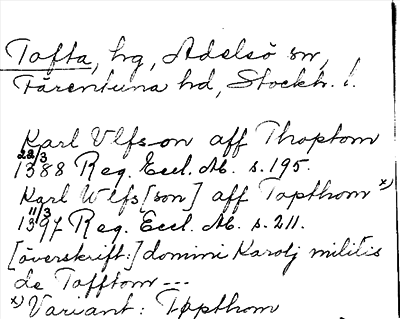 Tofta, hg, Adelsö sn,
Färentuna hd, Stockh. l.
Karl Ulfs-on aff Thoptom
22/3
1388 Reg. Eccl. Ab. s. 195.
Karl Wlfs[son] aff Topthom x)
11/3
1397 Reg. Eccl. Ab. s. 211.
[överskrift:] domini Karolj militis
de Tofftom ---
x) Variant: Tøpthom